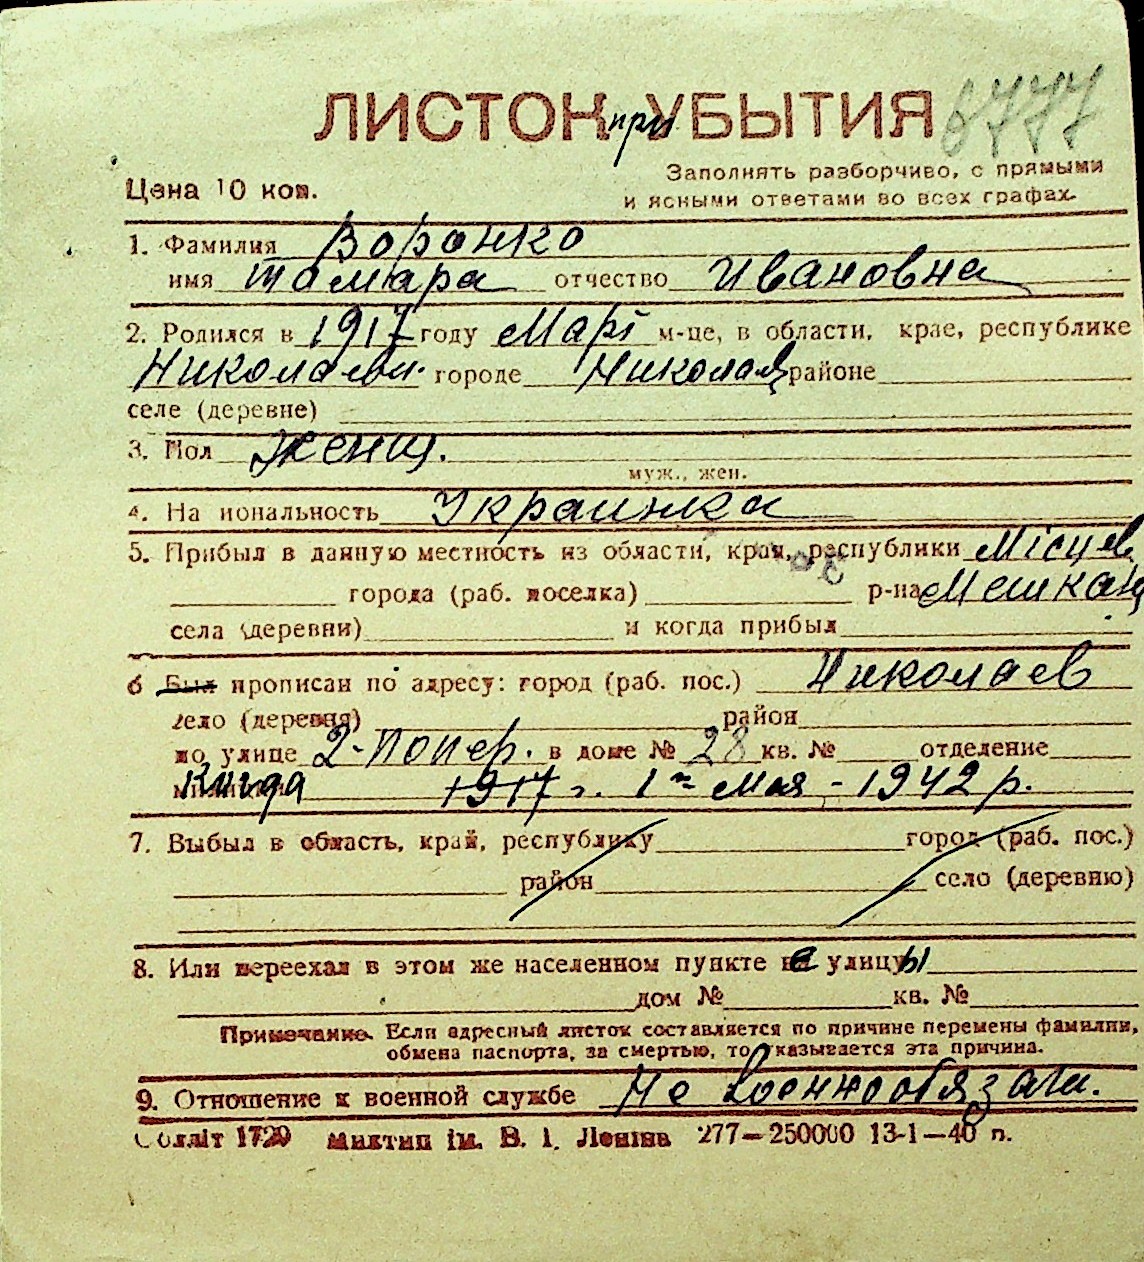 ЛИСТОК при УБЫТИЯ 6777
Заполнять разборчиво, с прямыми
Цена 10 коп. и ясными ответами во всех графах.
1. Фамилия Воронко
имя Тамара отчество Ивановна
2. Родился в 1917 году Март м-це, в области, крае, республике
Николаевск. городе Николаев районе
селе (деревне)
3. Пол Женщ.
муж., жен.
4. На иональность Украинка
5. Прибыл в данную местность из области, края, республики Місцев
города (раб. поселка) р-на Мешкан
села (деревни) и когда прибыл
6 Был прописан по адресу: город (раб. пос.) Николаев
село (деревня) район
по улице 2-Попер. в доме № 28 кв. № отделение
1917 г. 1го Мая - 1942 р.
7. Выбыл в область, край, республику город (раб. пос.)
район село (деревню)
8. Или переехал в этом же населенном пункте с улицы
дом № кв. №
Примечание. Если адресный листок составляется по причине перемены фамилии,
обмена паспорта, за смертью, то указывается эта причина.
9. Отношение к военной службе Не военнообязан.
Облліт 1720 Миктип ім. В. І. Леніна 277—250000 13-1—40 п.